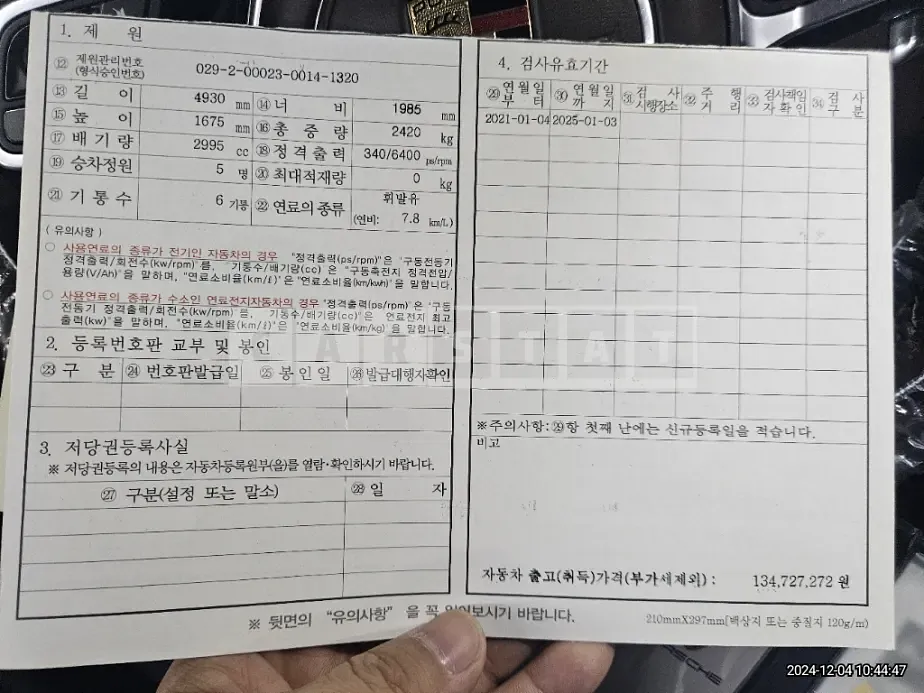 1. 제 원
⑫ 제원관리번호
(형식승인번호)
029-2-00023-0014-1320
⑬ 길 이 4930 mm ⑭ 너 비 1985 mm
⑮ 높 이 1675 mm ⑯ 총 중 량 2420 kg
⑰ 배 기 량 2995 cc ⑱ 정 격 출 력 340/6400 ps/rpm
⑲ 승차정원 5 명 ⑳ 최대적재량 0 kg
㉑ 기 통 수 6 기통 ㉒ 연료의 종류 휘발유
(연비: 7.8 km/L)
( 유의사항 )
○ 사용연료의 종류가 전기인 자동차의 경우 "정격출력(ps/rpm)"은 "구동전동기
정격출력/회전수(kw/rpm)"를, "기통수/배기량(cc)은 "구동축전지 정격전압/
용량(V/Ah)"을 말하며, "연료소비율(km/ℓ)"은 "연료소비율(km/kwh)"을 말합니다.
○ 사용연료의 종류가 수소인 연료전지자동차의 경우 "정격출력(ps/rpm)"은 "구동
전동기 정격출력/회전수(kw/rpm) 를, 기통수/배기량(cc)"은 "연료전지 최고
출력(kw)"을 말하며, "연료소비율(km/ℓ)"은 "연료소비율(km/kg) 을 말합니다.
2. 등록번호판 교부 및 봉인
㉓ 구 분 ㉔ 번호판발급일 ㉕ 봉 인 일 ㉖ 발급대행자확인
3. 저당권등록사실
※ 저당권등록의 내용은 자동차등록원부(을)를 열람·확인하시기 바랍니다.
㉗ 구분(설정 또는 말소) ㉘ 일 자
4. 검사유효기간
㉙ 연월일 부 터 ㉚ 연월일 까 지 ㉛ 검 사 시행장소 ㉜ 주 행 거 리 ㉝ 검사책임 자확인 ㉞ 검 사 구 분
2021-01-04 2025-01-03
※주의사항: ㉙항 첫째 난에는 신규등록일을 적습니다.
비고
자동차 출고(취득)가격(부가세제외) : 134,727,272 원
※ 뒷면의 "유의사항" 을 꼭 읽어보시기 바랍니다.
210mmX297mm[백상지 또는 중질지 120g/m)
CARSTAT
2024-12-04 10:44:47